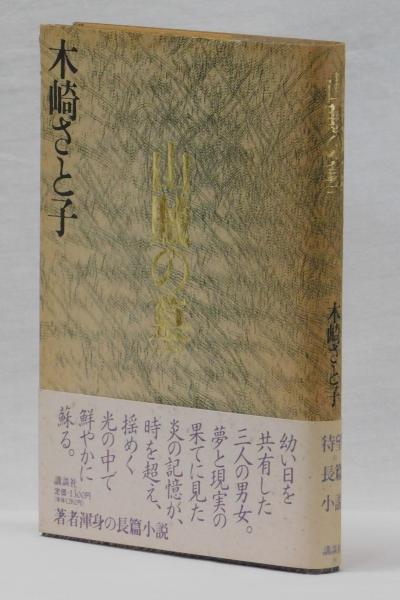 木崎さと子
山賊の墓
幼い日を
共有した
三人の男女。
夢と現実の
果てに見た
炎の記憶が、
時を超え、
揺めく
光の中で
鮮やかに
蘇る。
講談社
定価・1300円
著者渾身の長篇小説
山賊の墓
木崎さと子
待望
長篇
小説
講談社